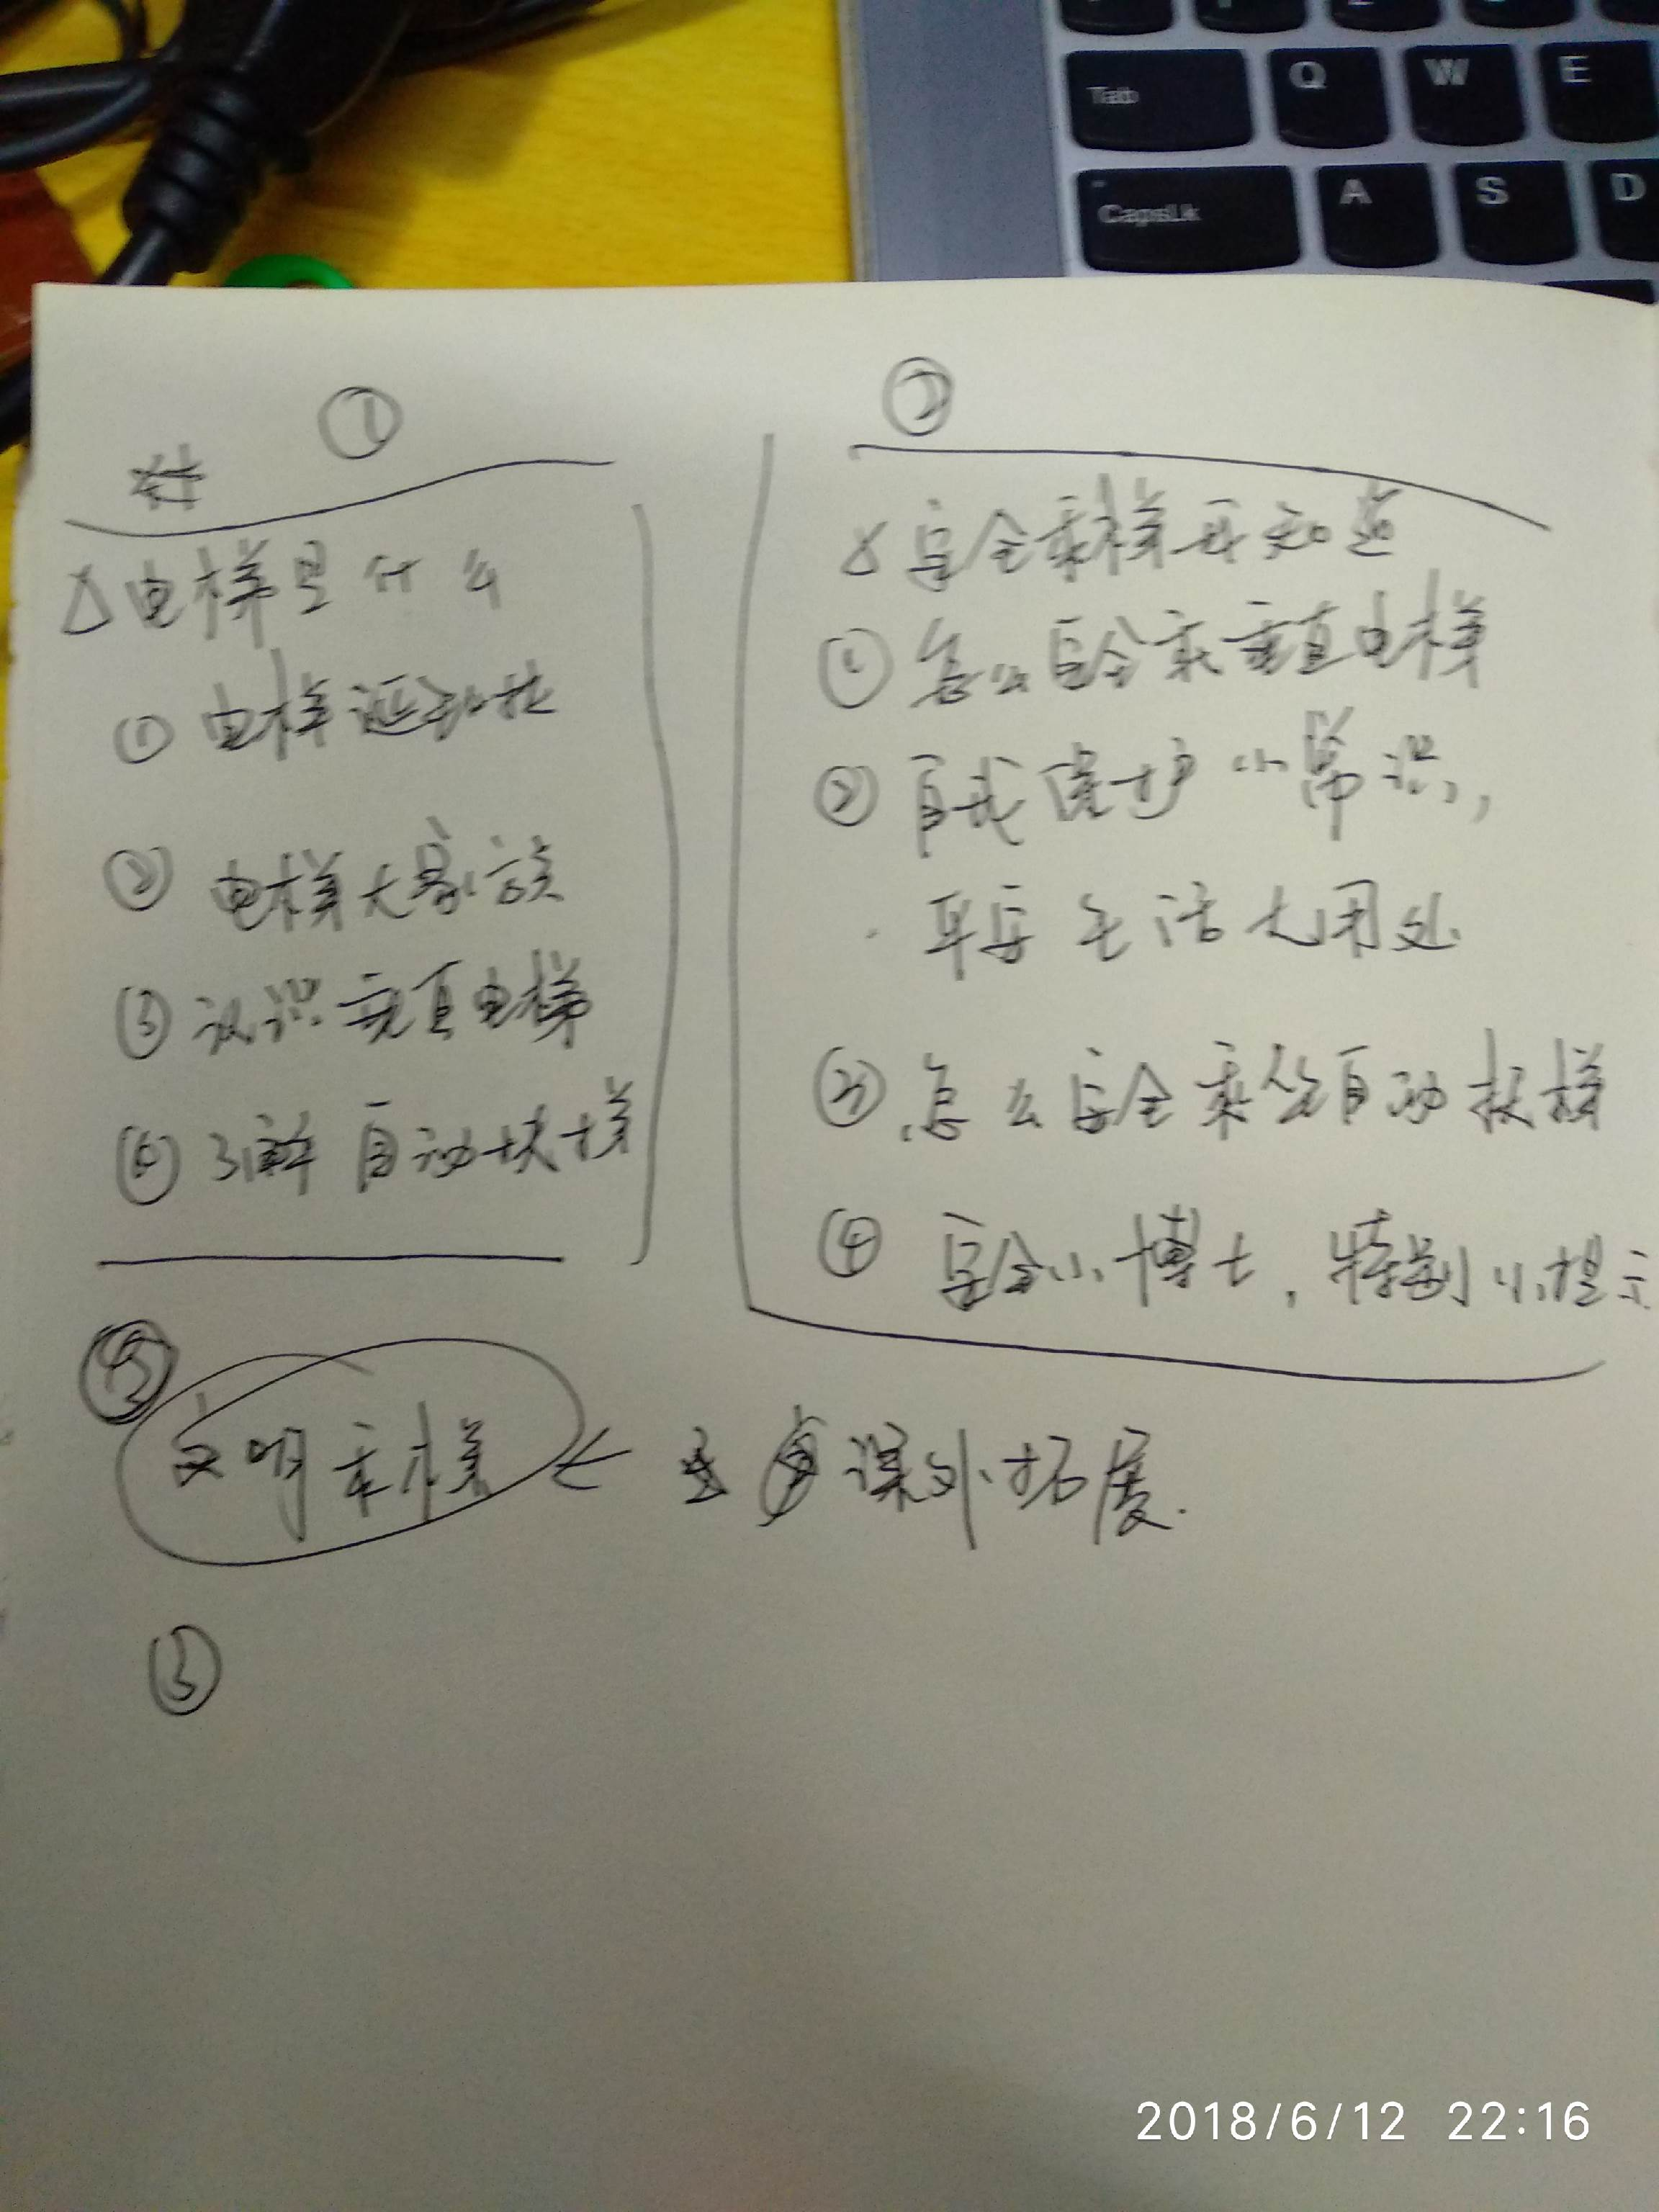 Tab Q W E
CapsLk A S D
①
△电梯是什么
① 电梯诞生
② 电梯大家族
③ 认识垂直电梯
④ 了解自动扶梯
②
△安全乘梯我知道
① 怎么安全乘垂直电梯
② 自我保护小常识,
生活大用处
③ 怎么安全乘坐自动扶梯
④ 安全小博士,特别小提示
文明乘梯 ← 课外拓展.
③
2018/6/12 22:16